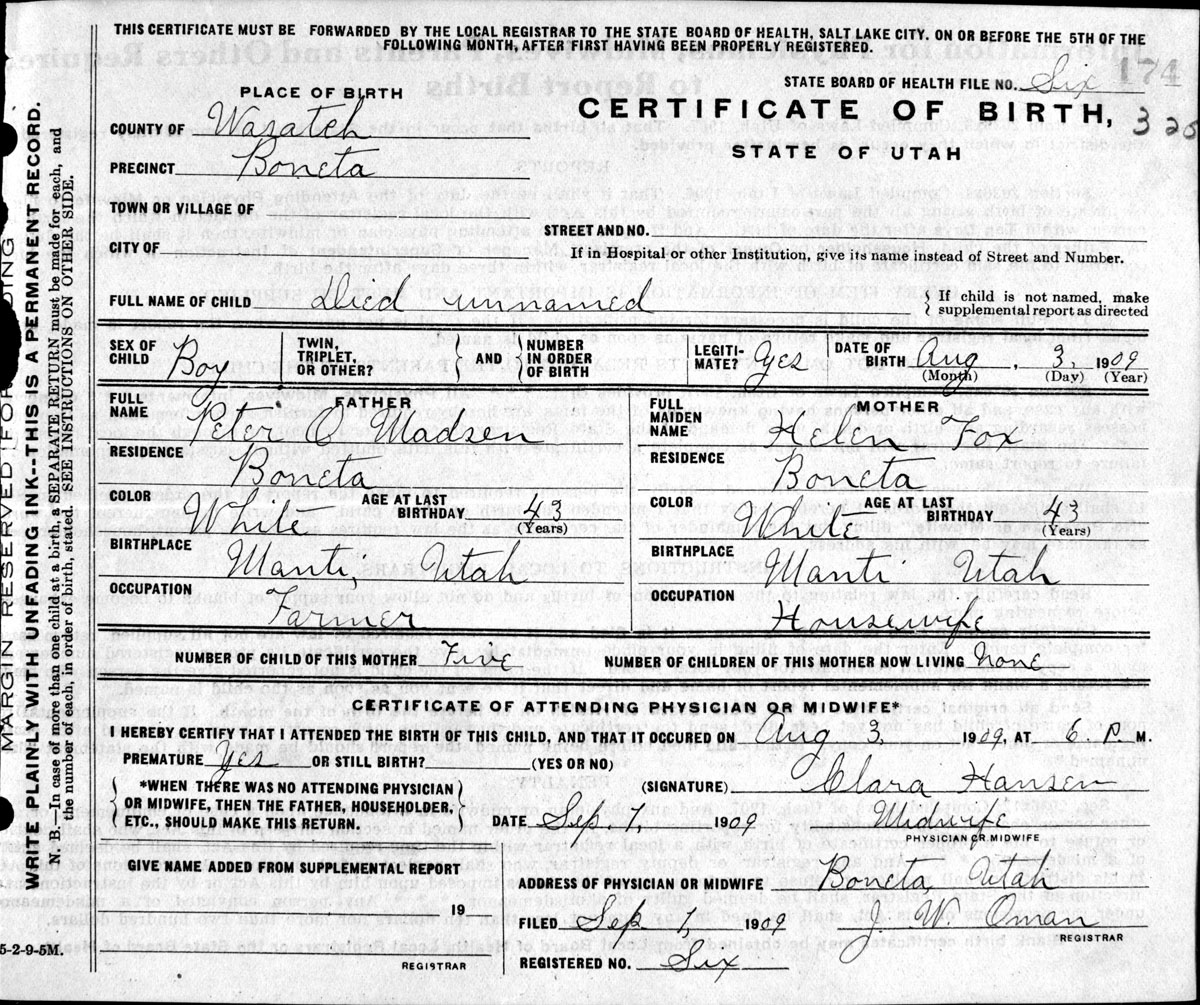 THIS CERTIFICATE MUST BE FORWARDED BY THE LOCAL REGISTRAR TO THE STATE BOARD OF HEALTH, SALT LAKE CITY, ON OR BEFORE THE 5TH OF THE
FOLLOWING MONTH, AFTER FIRST HAVING BEEN PROPERLY REGISTERED.
STATE BOARD OF HEALTH FILE NO. Six 174
PLACE OF BIRTH
CERTIFICATE OF BIRTH, 328
STATE OF UTAH
COUNTY OF Wasatch
PRECINCT Boneta
TOWN OR VILLAGE OF
STREET AND NO.
CITY OF
If in Hospital or other Institution, give its name instead of Street and Number.
FULL NAME OF CHILD Died unnamed
{ If child is not named, make
supplemental report as directed
SEX OF CHILD Boy
TWIN, TRIPLET, OR OTHER? { AND } NUMBER IN ORDER OF BIRTH
LEGITIMATE? Yes
DATE OF BIRTH Aug, 3, 1909
(Month) (Day) (Year)
FATHER
FULL NAME Peter C Madsen
RESIDENCE Boneta
COLOR White AGE AT LAST BIRTHDAY 43
(Years)
BIRTHPLACE Manti, Utah
OCCUPATION Farmer
MOTHER
FULL MAIDEN NAME Helen Fox
RESIDENCE Boneta
COLOR White AGE AT LAST BIRTHDAY 43
(Years)
BIRTHPLACE Manti Utah
OCCUPATION Housewife
NUMBER OF CHILD OF THIS MOTHER Five NUMBER OF CHILDREN OF THIS MOTHER NOW LIVING None
CERTIFICATE OF ATTENDING PHYSICIAN OR MIDWIFE*
I HEREBY CERTIFY THAT I ATTENDED THE BIRTH OF THIS CHILD, AND THAT IT OCCURED ON Aug 3, 1909, AT 6. P M.
PREMATURE Yes OR STILL BIRTH? (YES OR NO)
{ *WHEN THERE WAS NO ATTENDING PHYSICIAN
OR MIDWIFE, THEN THE FATHER, HOUSEHOLDER,
ETC., SHOULD MAKE THIS RETURN. }
(SIGNATURE) Clara Hansen
DATE Sep 1, 1909 Midwife
PHYSICIAN OR MIDWIFE
GIVE NAME ADDED FROM SUPPLEMENTAL REPORT
19
REGISTRAR
ADDRESS OF PHYSICIAN OR MIDWIFE Boneta, Utah
FILED Sep 1, 1909 J. W. Oman
REGISTRAR
REGISTERED NO. Six
5-2-9-5M.
MARGIN RESERVED FOR
WRITE PLAINLY WITH UNFADING INK--THIS IS A PERMANENT RECORD.
N. B.—In case of more than one child at a birth, a SEPARATE RETURN must be made for each, and
the number of each, in order of birth, stated. SEE INSTRUCTIONS ON OTHER SIDE.